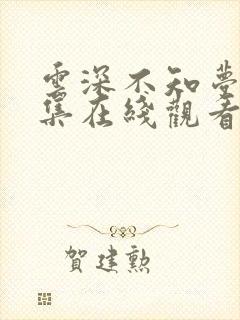 雲深不知夢
集在綫觀看
賀建勲